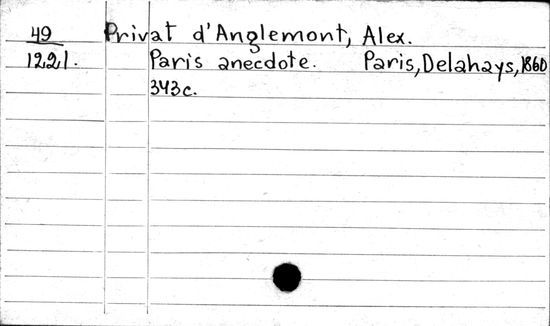 49 Privat d'Anglemont, Alex.
1221. Paris anecdote. Paris, Delahays, 1860
343c.